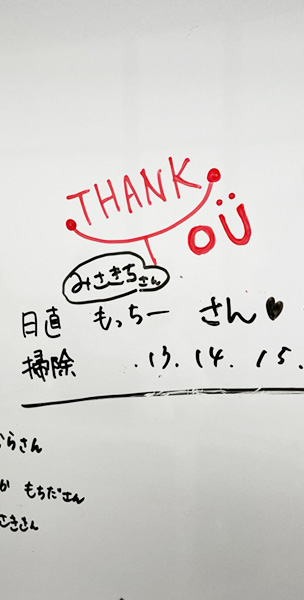 THANK
YOU
みさきちさん
日直 もっちー さん♥
掃除 .13.14.15.
らさん
か もちださん
さきさん